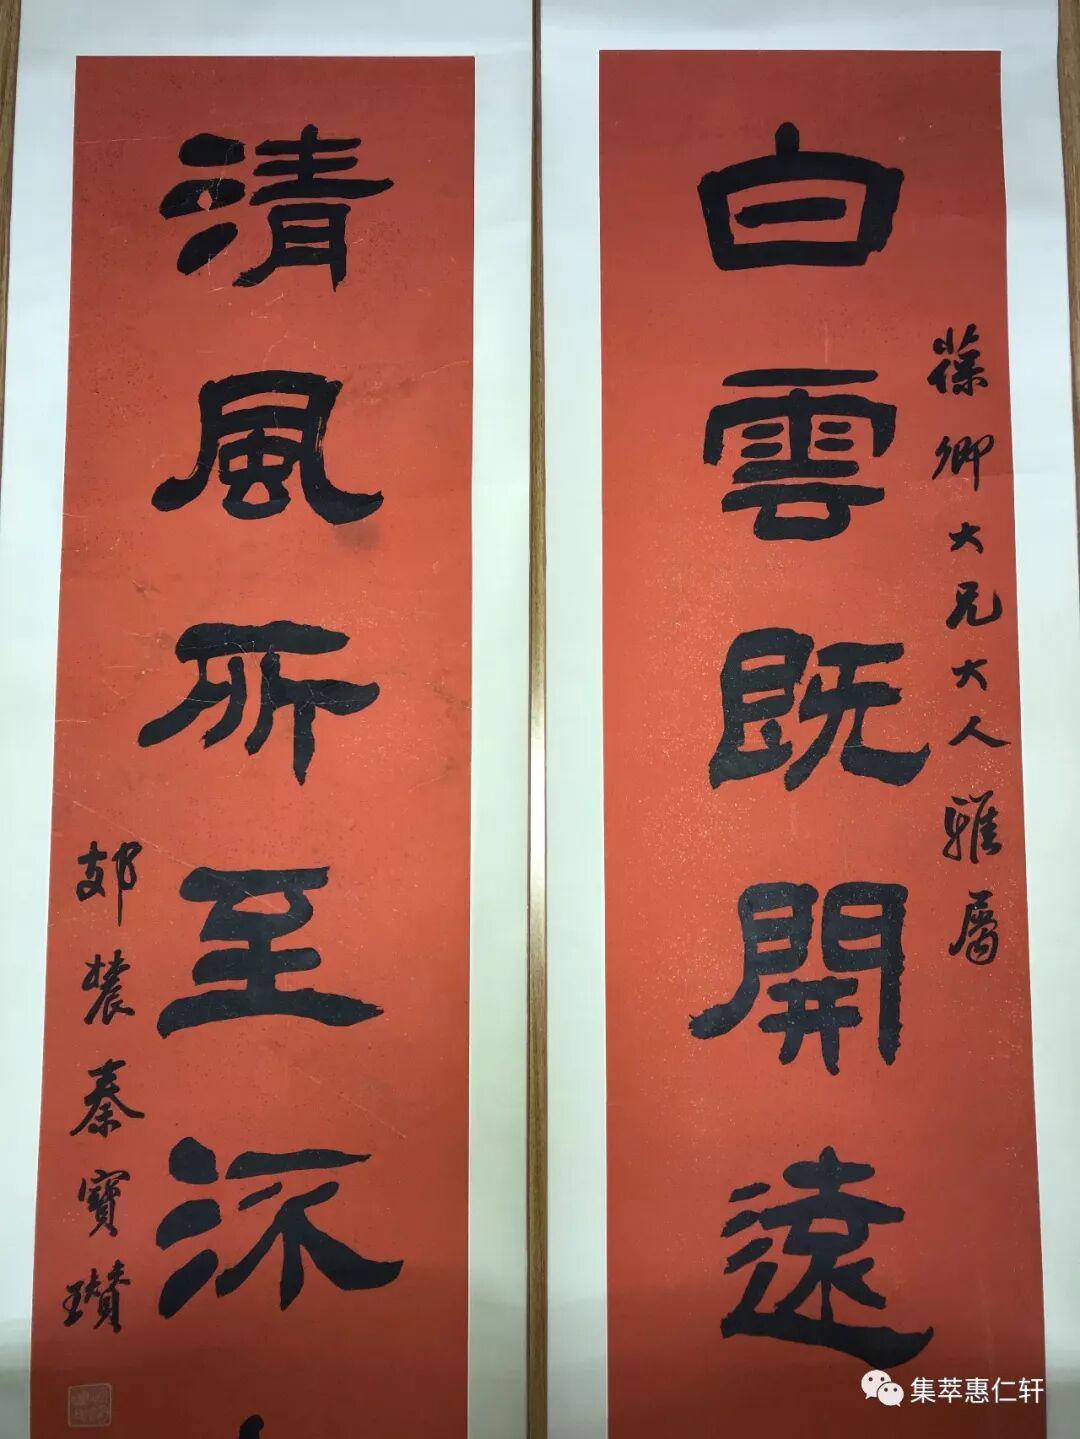 白雲既開遠
葆卿大兄大人雅屬
清風所至深
郊農秦寶瓚
集萃惠仁轩